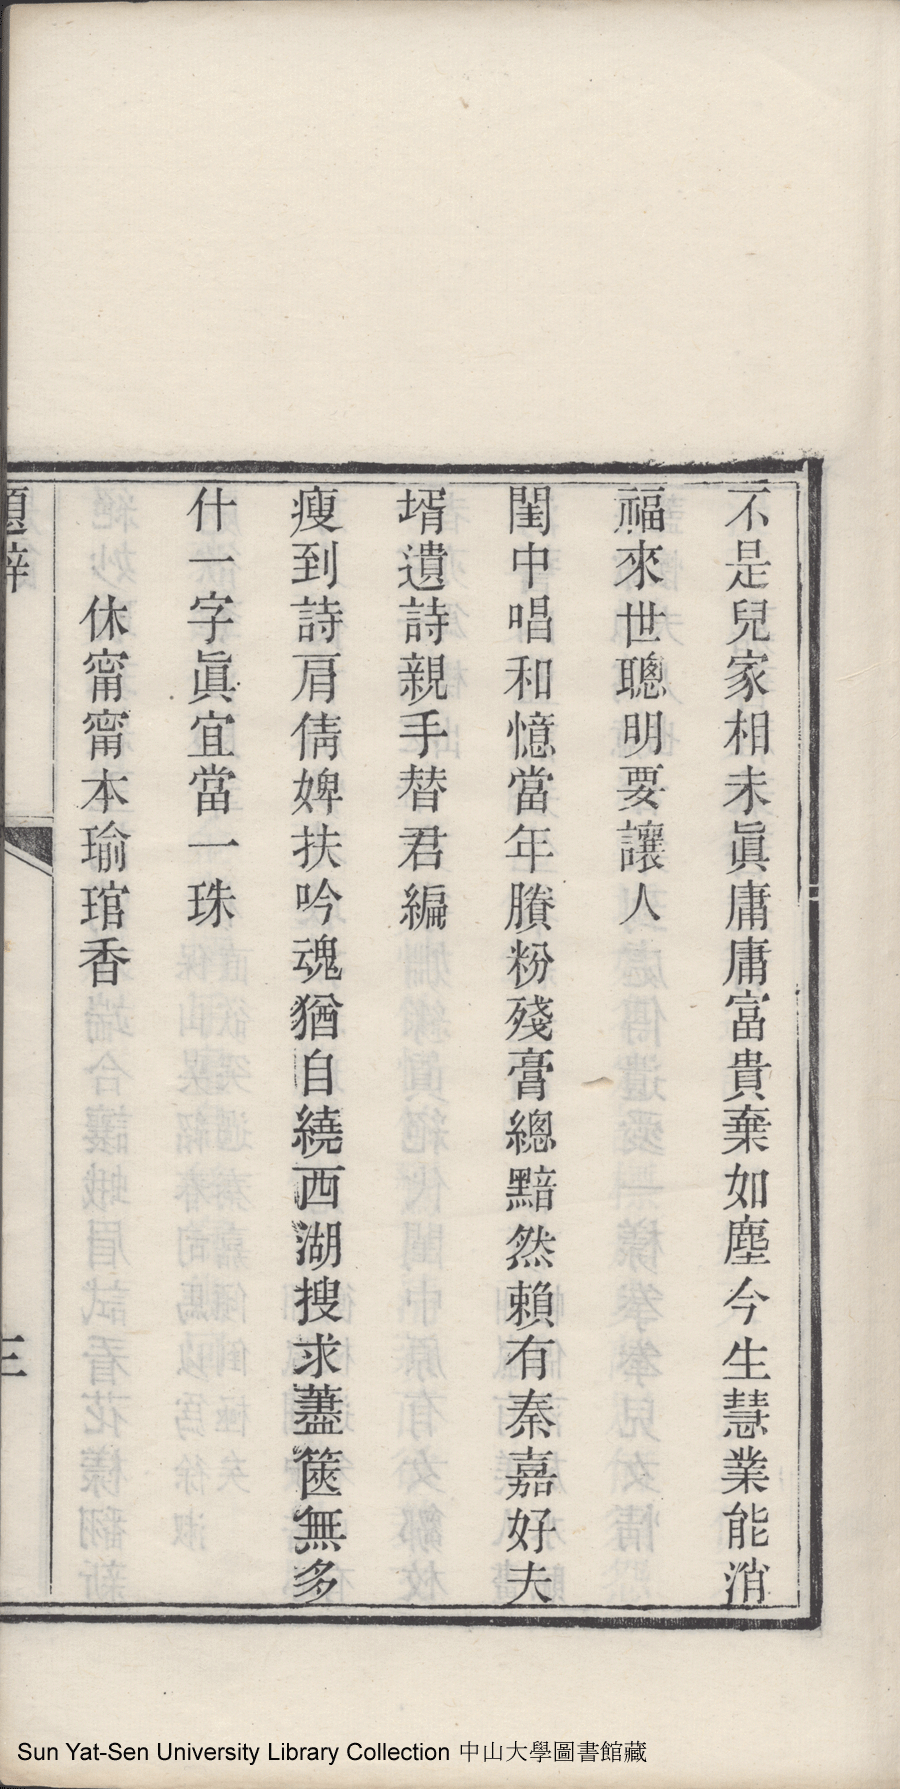 不是兒家相未眞庸庸富貴棄如塵今生慧業能消
福來世聰明要讓人
閨中唱和憶當年賸粉殘膏總黯然賴有秦嘉好夫
壻遺詩親手替君編
瘦到詩肩倩婢扶吟魂猶自繞西湖搜求藎篋無多
什一字眞宜當一珠
休甯甯本瑜琯香
題辭
三
Sun Yat-Sen University Library Collection 中山大學圖書館藏